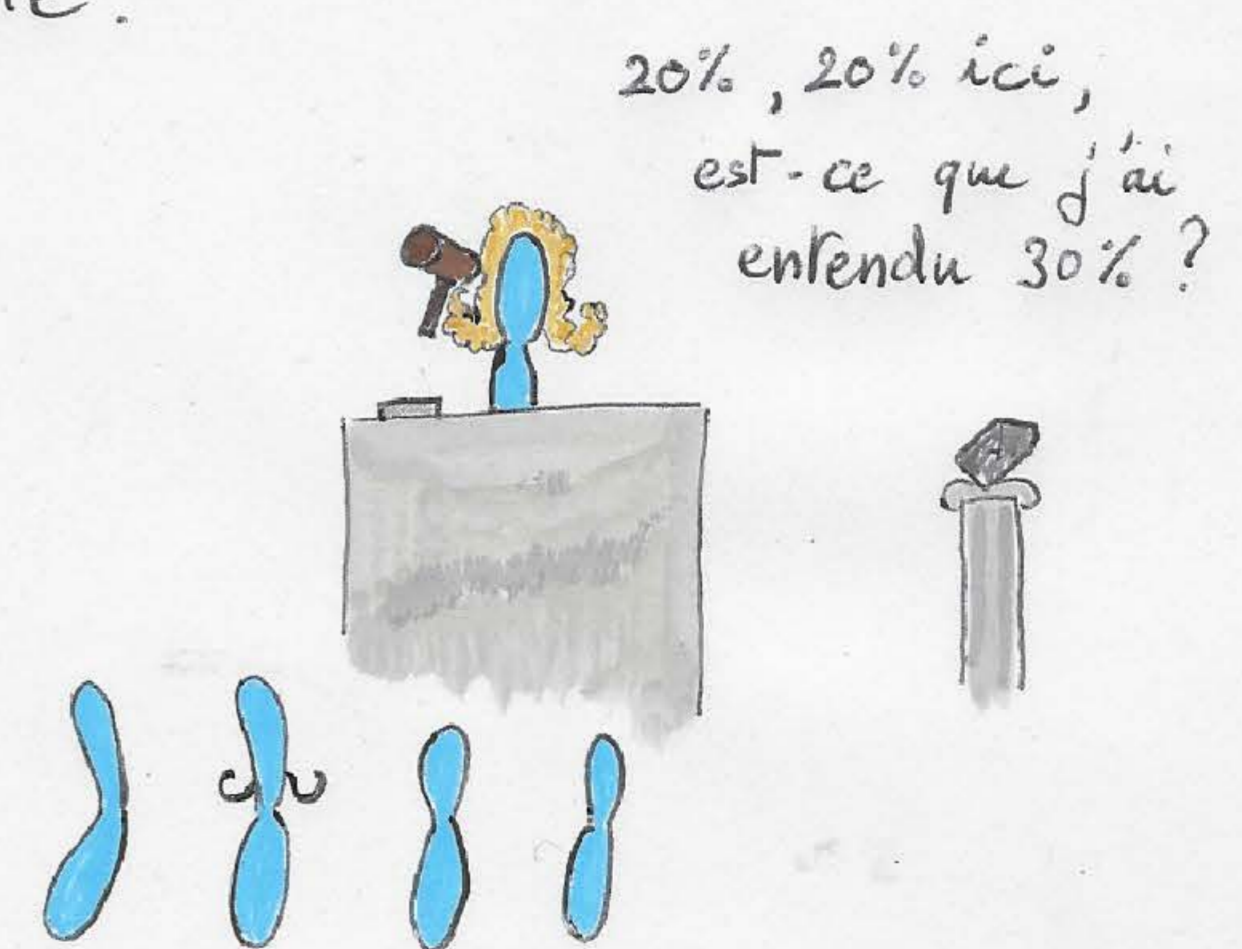 20%, 20% ici,
est-ce que j'ai
entendu 30% ?